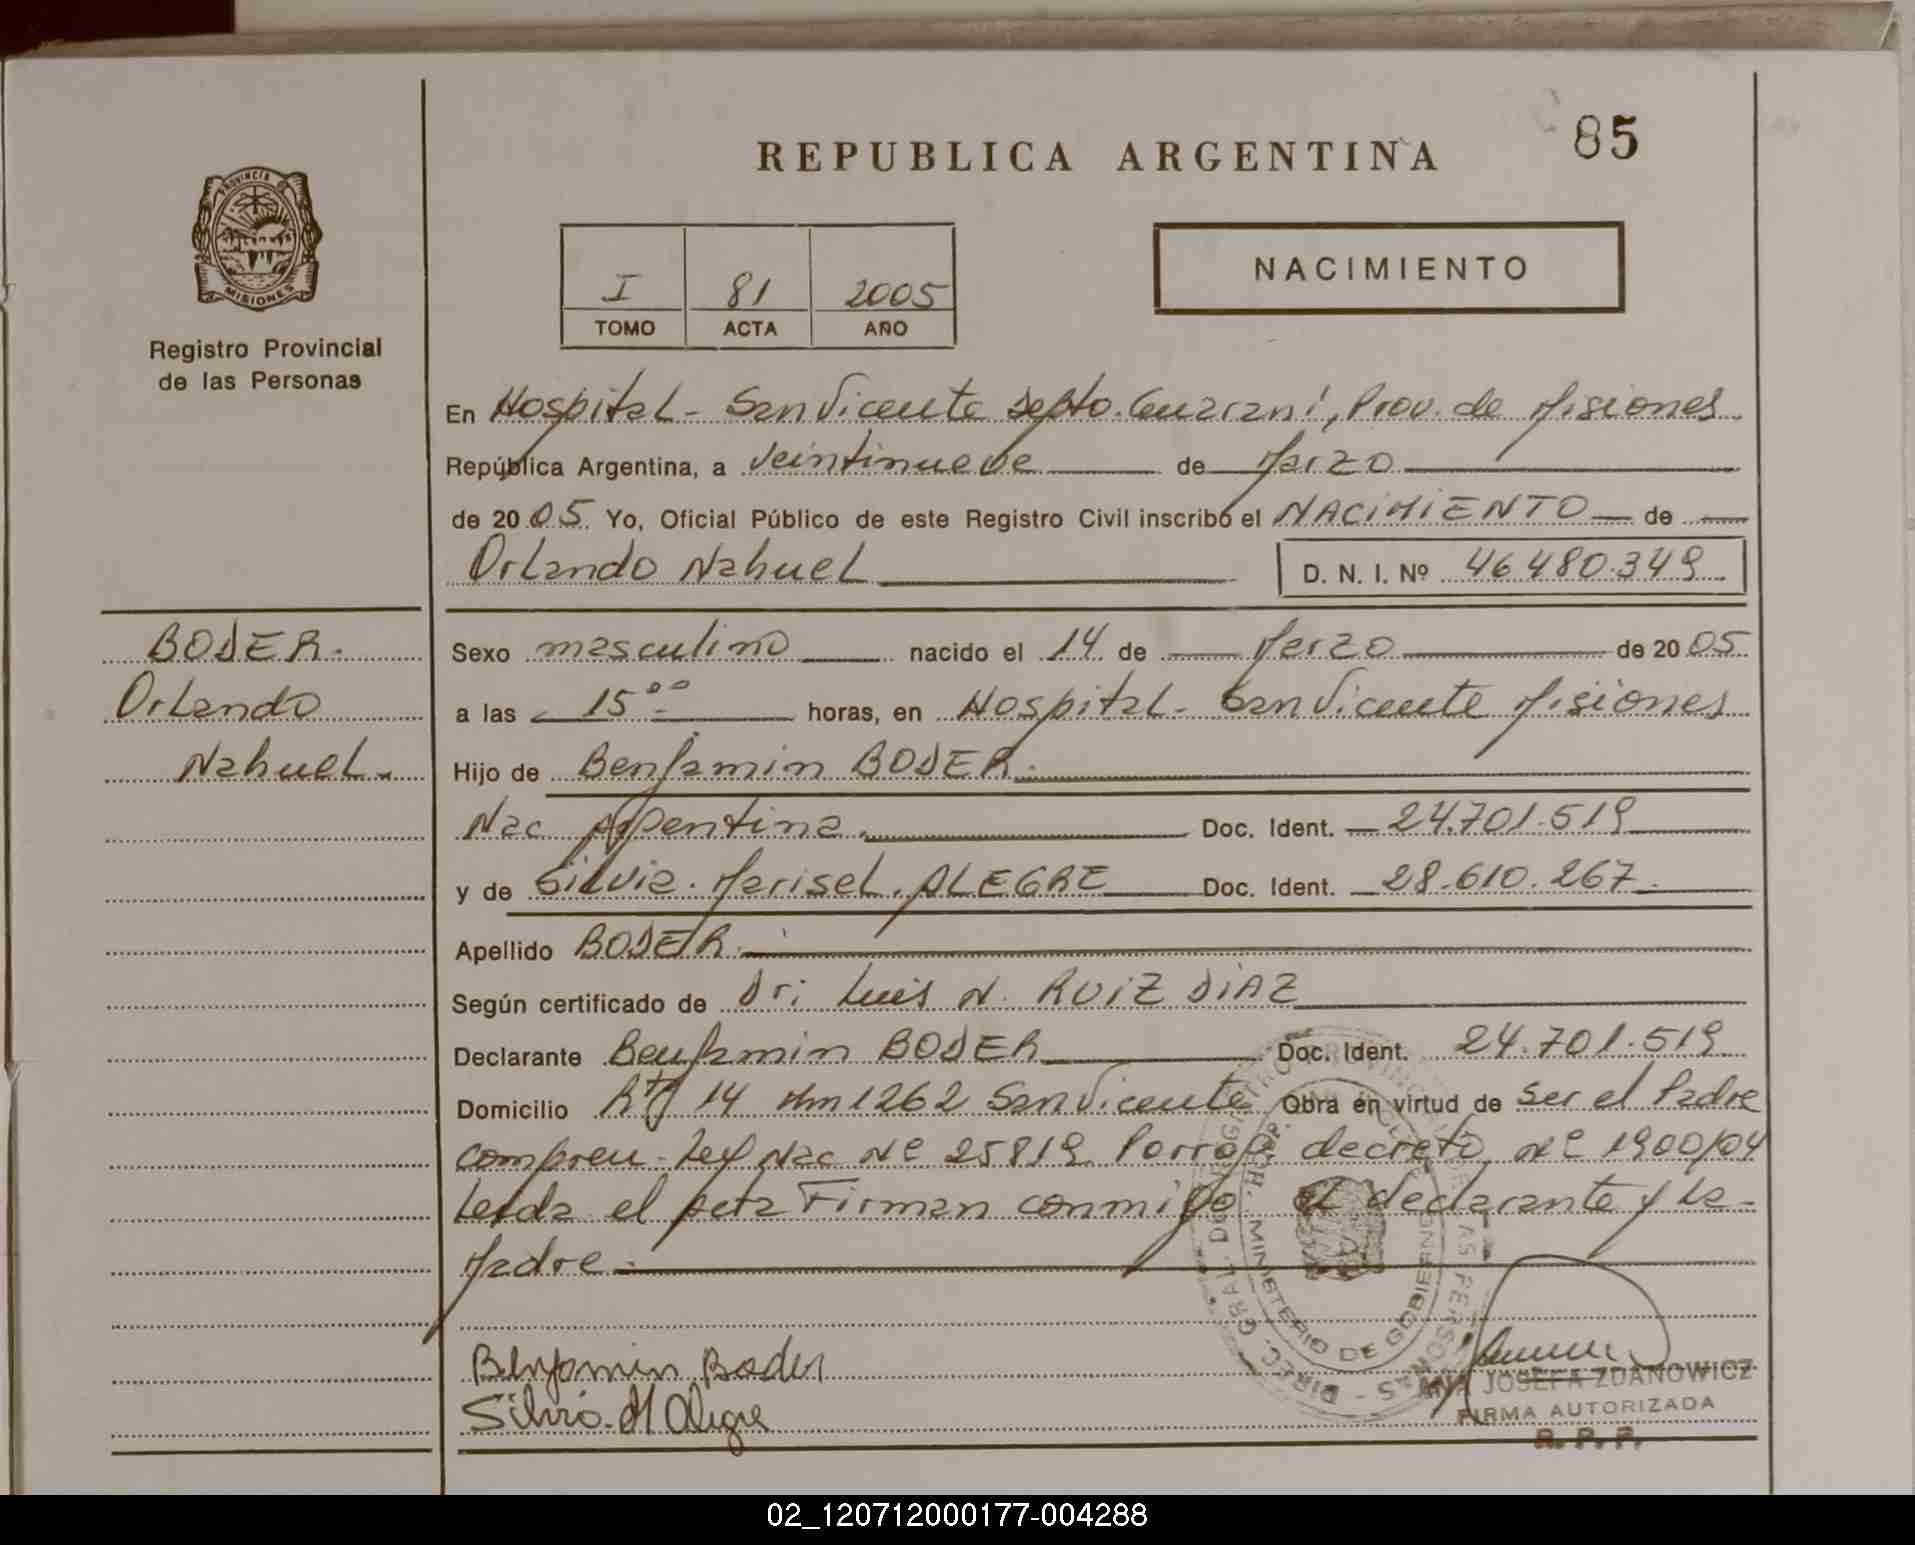 85
REPUBLICA ARGENTINA
PROVINCIA DE
MISIONES
Registro Provincial
de las Personas
I 81 2005
TOMO ACTA AÑO
NACIMIENTO
En Hospital - San Vicente Depto. Guarani, Prov. de Misiones
República Argentina, a veintinueve de Marzo
de 2005. Yo, Oficial Público de este Registro Civil inscribo el NACIMIENTO de
Orlando Nahuel D. N. I. Nº 46.480.349
BODER.
Orlando
Nahuel.
Sexo masculino nacido el 14 de Marzo de 2005
a las 15⁰⁰ horas, en Hospital - San Vicente Misiones
Hijo de Benjamin BODER.
Nac Argentina. Doc. Ident. 24.701.519
y de Silvia. Marisel. ALEGRE Doc. Ident. 28.610.267
Apellido BODER.
Según certificado de Dr: Luis N. RUIZ DIAZ
Declarante Benjamin BODER Doc. Ident. 24.701.519
Domicilio Rta 14 Km 1262 San Vicente Obra en virtud de ser el Padre
compren. Ley Nac Nº 25819 decreto Nº 1900/04
Leida el acta Firman conmigo el declarante y la
Madre.
Benjamin Boder
Silvia. M Alegre
DIREC. GRAL. DEL REGISTRO PROVINCIAL DE LAS PERSONAS
MINISTERIO DE GOBIERNO
ANA JOSEFA ZDANOWICZ
FIRMA AUTORIZADA
R. P. P.
02_120712000177-004288